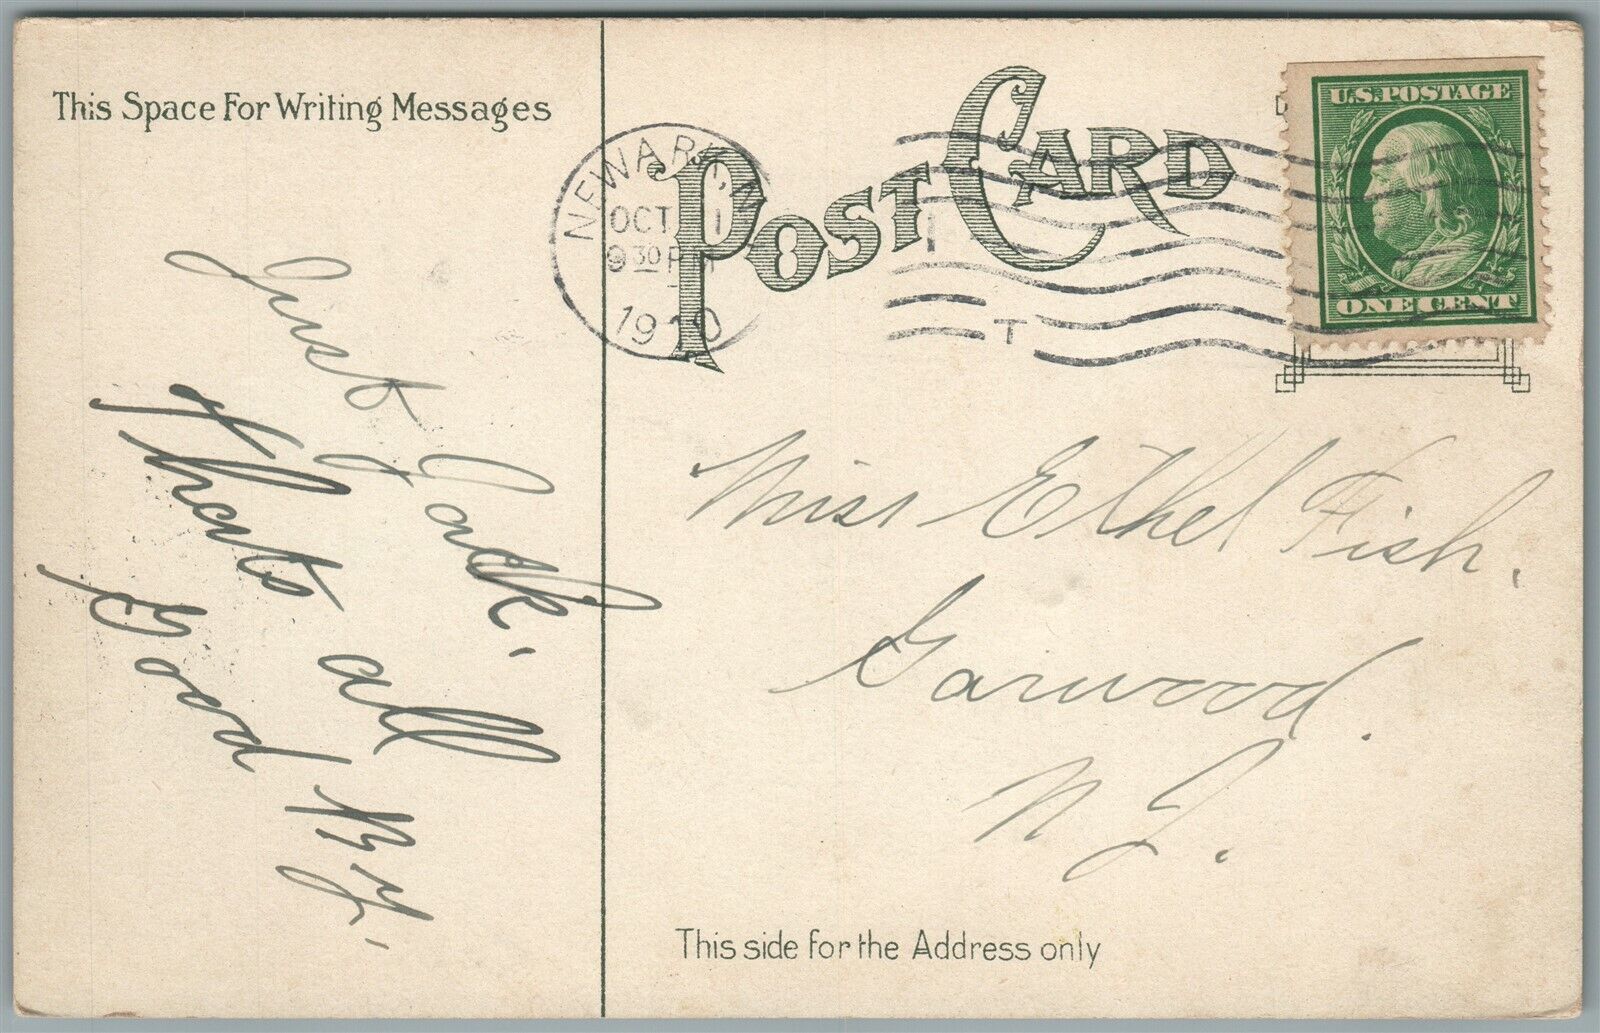 This Space For Writing Messages
Just Jack.
thats all
Good By.
POST CARD
NEWARK, N
OCT 1
9 30 PM
1910
U.S. POSTAGE
ONE CENT
Miss Ethel Fish.
Garwood.
N J.
This side for the Address only